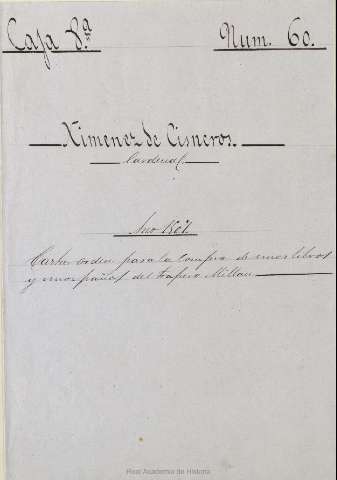 Caja 8.ª Num. 60.
Ximenez de Cisneros.
Cardenal
Año 1507
Carta orden para la compra de unos libros
y unos paños del trapero Millan
Real Academia de Historia